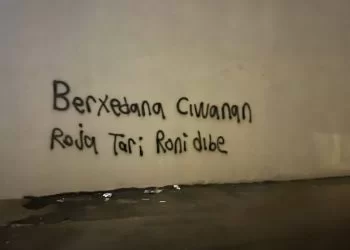 Berxedana Ciwanan
Roja Tari Roni dibe